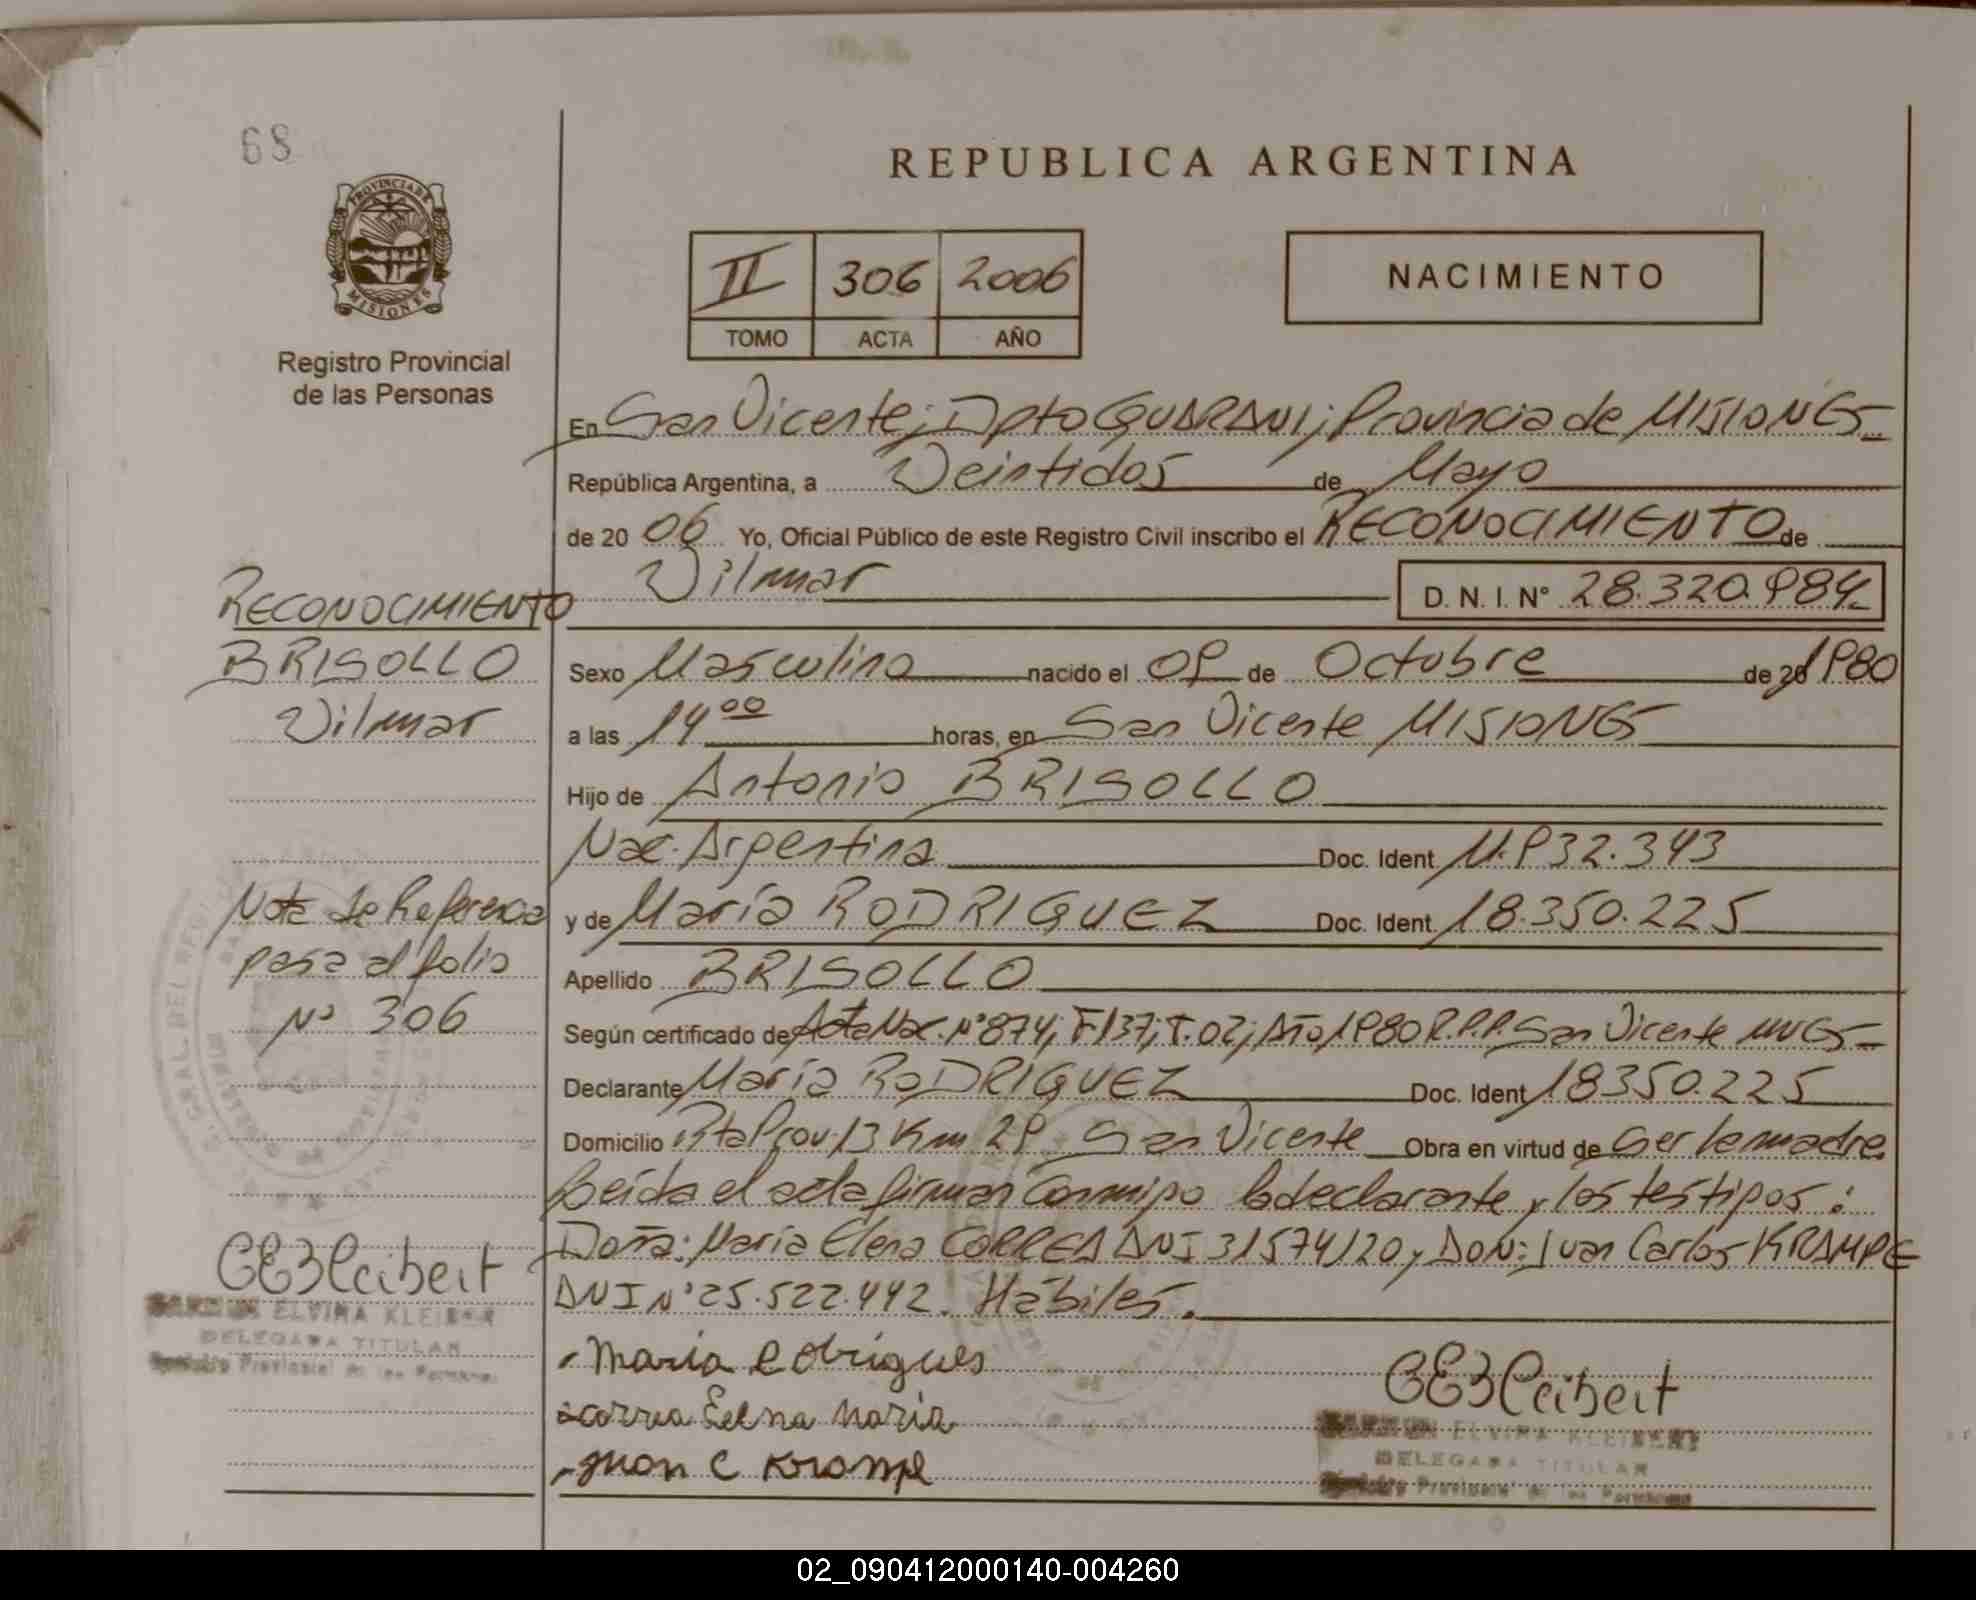 68
PROVINCIA DE
MISIONES
Registro Provincial
de las Personas
REPUBLICA ARGENTINA
II 306 2006
TOMO ACTA AÑO
NACIMIENTO
En San Vicente; Dpto GUARANI; Provincia de MISIONES
República Argentina, a Veintidos de Mayo
de 20 06 Yo, Oficial Público de este Registro Civil inscribo el RECONOCIMIENTO de
Vilmar D. N. I. N° 28.320.984
Sexo Masculino nacido el 09 de Octubre de 20 1980
a las 14 00 horas, en San Vicente MISIONES
Hijo de Antonio BRISOLLO
Nac. Argentina Doc. Ident. M.932.343
y de María RODRIGUEZ Doc. Ident. 18.350.225
Apellido BRISOLLO
Según certificado de Acta Nac. N° 874; F 137; T. 02; Año 1980 R.P.P. San Vicente MNES
Declarante María RODRIGUEZ Doc. Ident 18350.225
Domicilio Rta Prov. 13 Km 29 San Vicente Obra en virtud de Ser la madre
Leída el acta firman Conmigo la declarante y los testigos:
Doña: María Elena CORREA DNI 31574120 y DON: Juan Carlos KRAMPE
DNI N° 25.522.442. Hábiles.
María Rodrigues
correa Eelna Maria
Juan C Krampe
CE3Kleibert
ELVIRA KLEIBERT
DELEGADA TITULAR
Registro Provincial de las Personas
RECONOCIMIENTO
BRISOLLO
Vilmar
Nota de Referencia
pasa al folio
N° 306
CE3Kleibert
ELVIRA KLEIBERT
DELEGADA TITULAR
Registro Provincial de las Personas
02_090412000140-004260